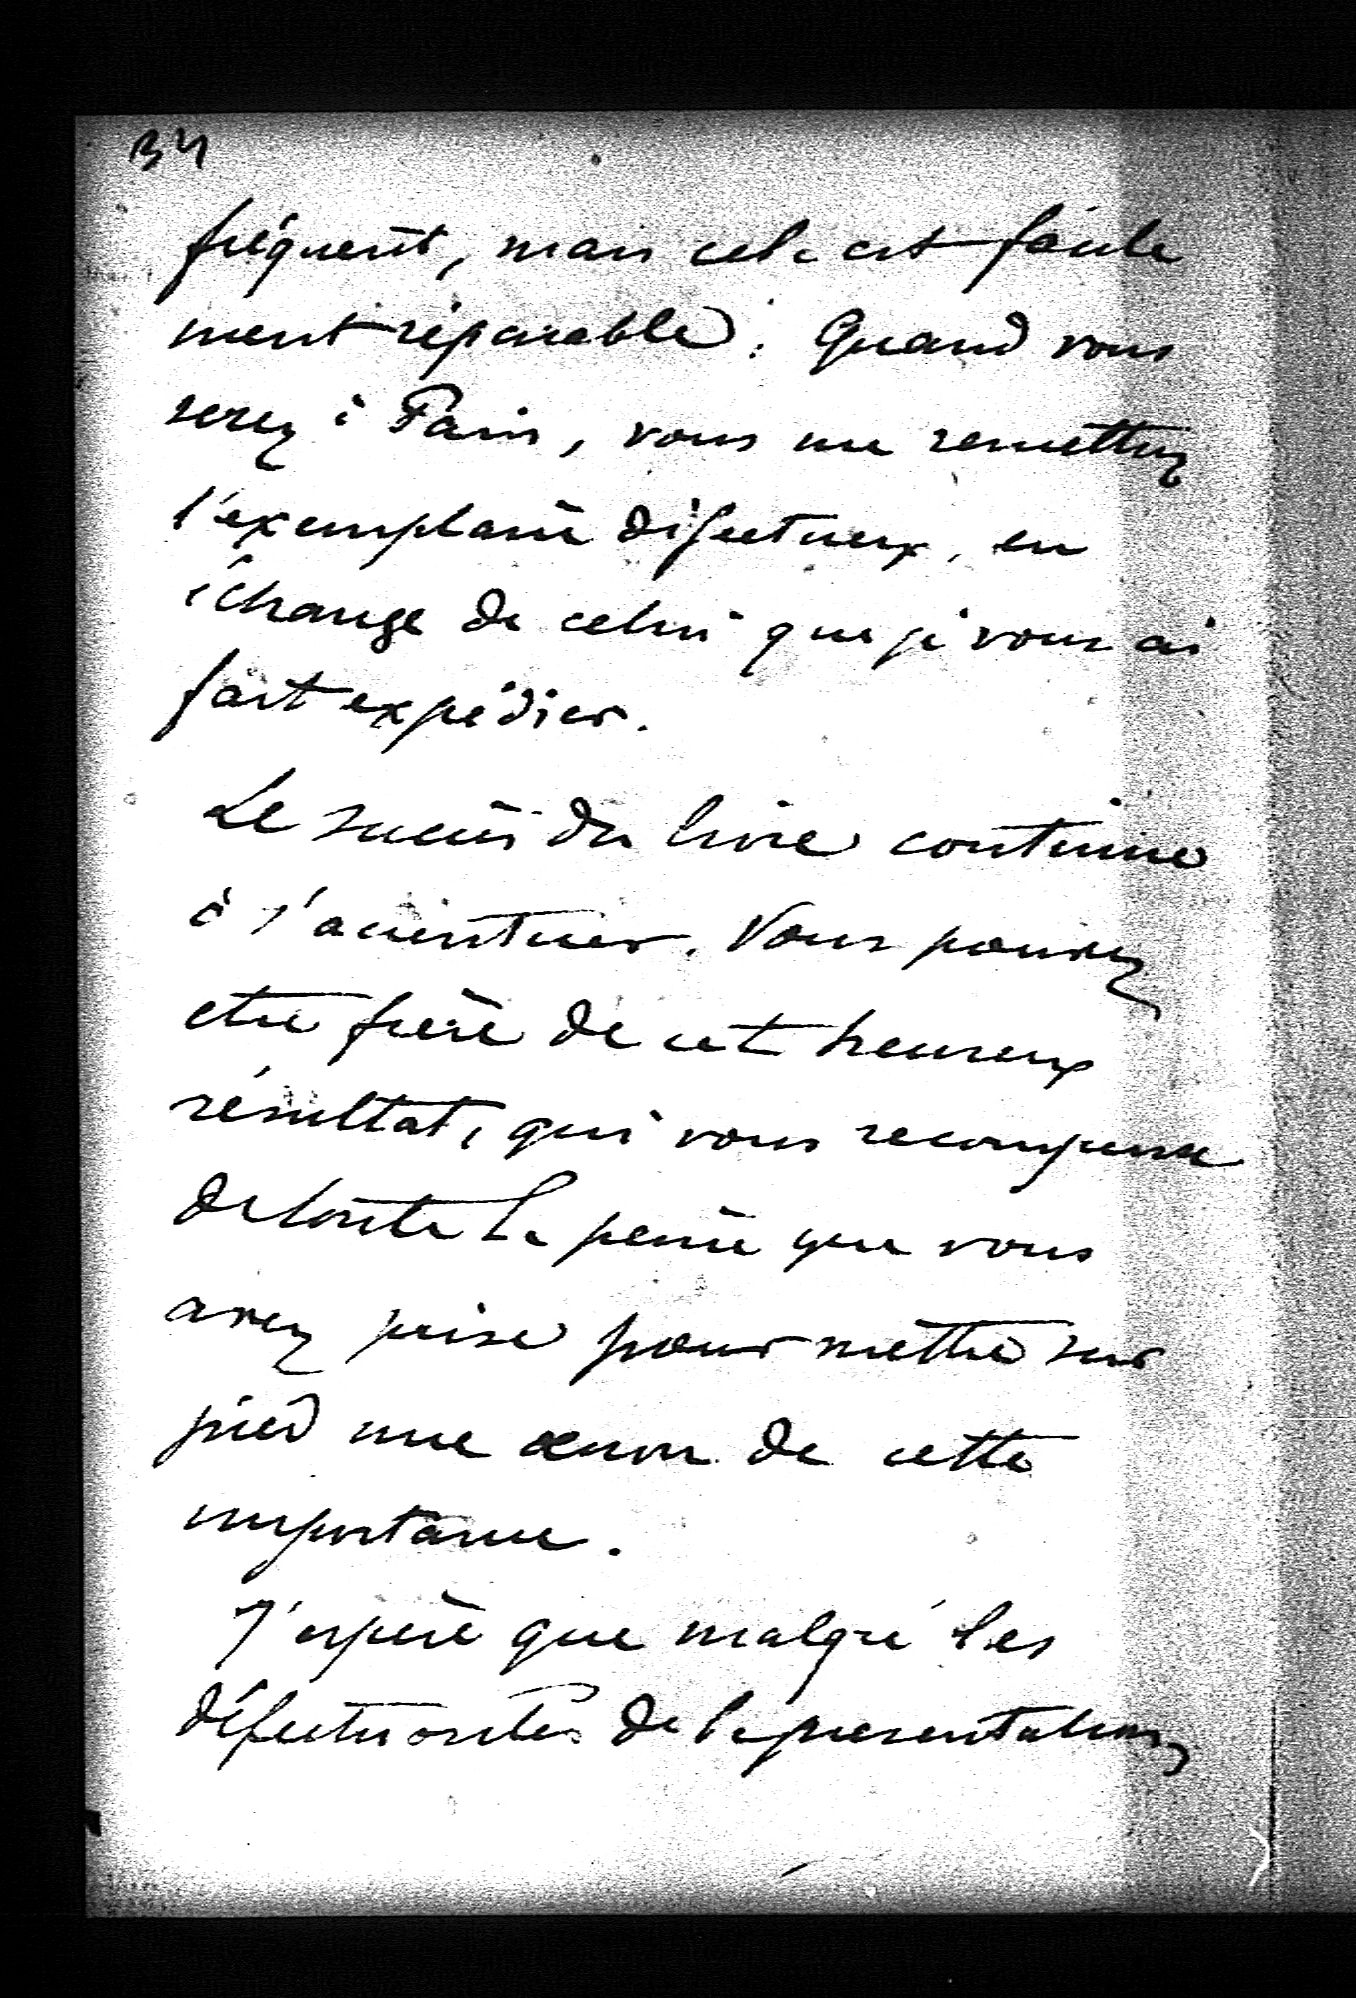 34
fréquent, mais cela est facile
ment réparable. Quand vous
serez à Paris, vous me remettrez
l'exemplaire défectueux, en
échange de celui que je vous ai
fait expédier.
Le succès du livre continue
à s'accentuer. Vous pouvez
etre fière de cet heureux
résultat, qui vous recompense
de toute la peine que vous
avez prise pour mettre sur
pied une œuvre de cette
importance.
J'espère que malgré les
défectuosités de la presentation,